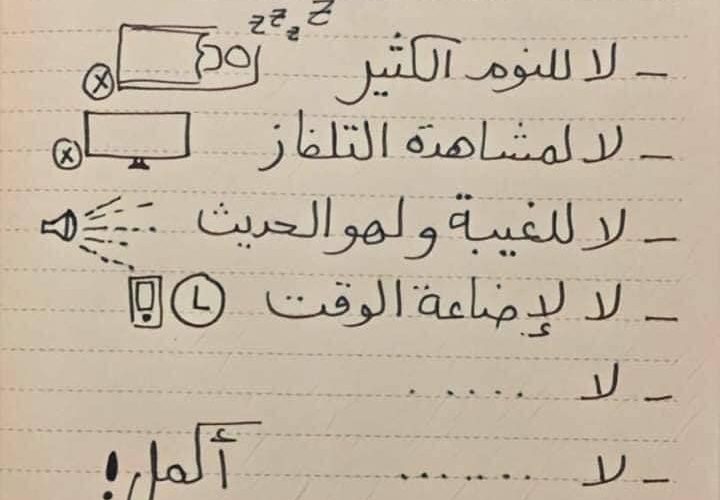 zzzz
- لا للنوم الكثير
- لا لمشاهدة التلفاز
- لا للغيبة ولهو الحديث
- لا لإضاعة الوقت
- لا .....
- لا .......
أكمل!